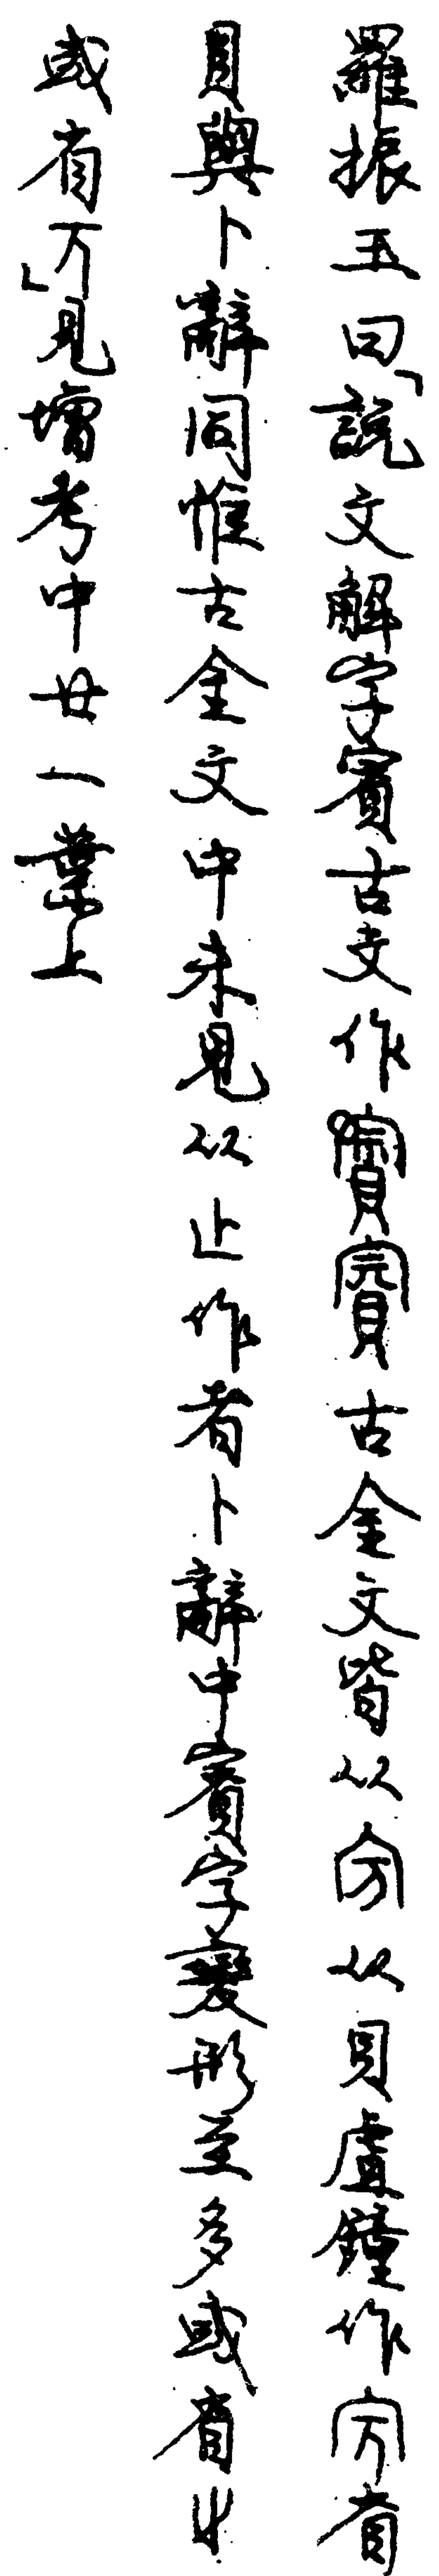 羅振玉曰「說文解字賓古文作𡪛賓古金文皆从𡧍从貝虘鐘作𡧍省
貝與卜辭同惟古金文中未見从止作者卜辭中賓字變形至多或省止
或省丏」見增考中廿一葉上